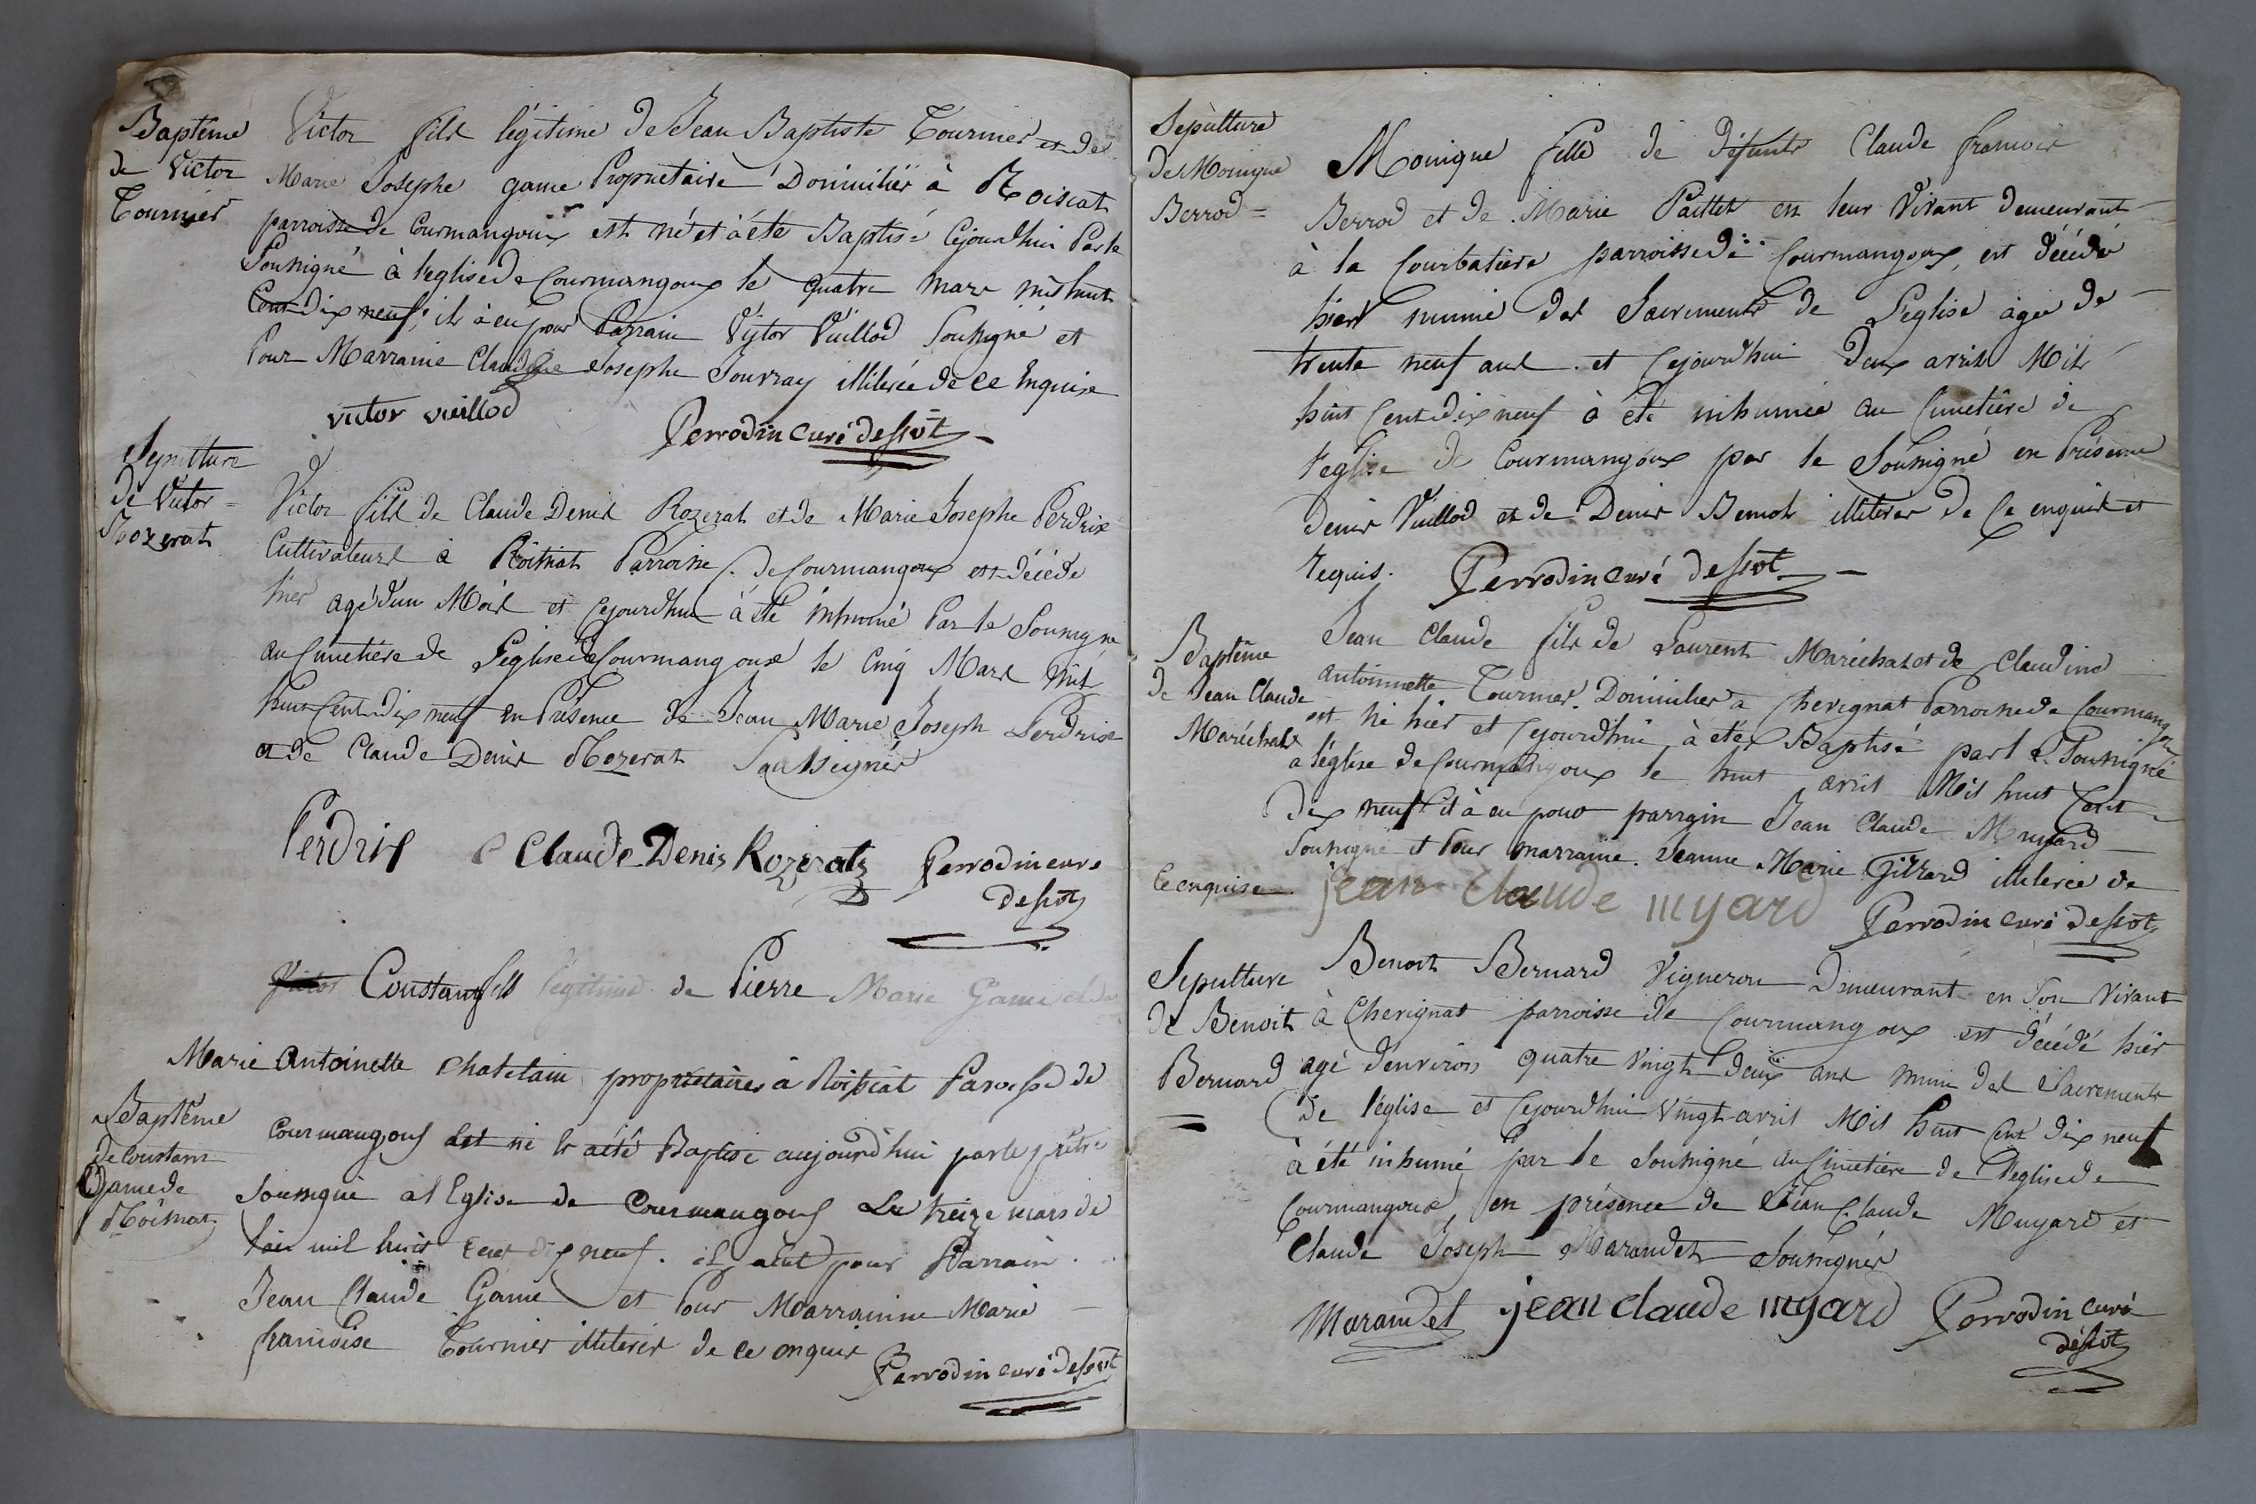 Baptême
de Victor
Tournier
Victor fils légitime de Jean Baptiste Tournier et de
Marie Josephe game Propriétaire Domicilier à Roissiat
parroisse de Courmangoux est né et à été Baptisé Cejourdhui Par le
Sousigné à l'eglise de Courmangoux le quatre mars mil huit
Cent dix neuf; il à eu pour Parrain Victor Vuillod Sousigné et
Pour Marraine Claudine Josephe Souvray illiterée de ce Enquise
victor vuillod
Perrodin curé dessvt
Sepulture
de Victor =
Rozerat
Victor fils de Claude Denis Rozerat et de Marie Josephe Perdrix
Cultivateurs à Roissiat Parroisse de Courmangoux est décédé
hier agé d'un Mois et Cejourdhui à été inhumé Par le Sousigné
au Cimetière de l'eglise de Courmangoux le Cinq Mars mil
huit Cent dix neuf en Présence de Jean Marie Joseph Perdrix
et de Claude Denis Rozerat Sousignés
Perdrix Claude Denis Rozerat Perrodin curé
dessvt
Constant fils légitime de Pierre Marie Game et de
Marie Antoinette Chatelain propriétaires à Roissiat Paroisse de
Baptême
de Constant
Game de
Roissiat
Courmangoux est né et a été Baptisé aujourd'hui par le prêtre
Sousigné a l'Eglise de Courmangoux Le treize mars de
l'an mil huit cent dix neuf. il a eut pour Parrain
Jean Claude Game et Pour Marrainne Marie
francoise Tournier illiterés de ce enquis
Perrodin curé dessvt
Sepulture
de Monique
Berrod =
Monique fille de défunts Claude francois
Berrod et de Marie Paillet en leur Vivant demeurant
à la Courbatiere parroisse de Courmangoux, est décédée
hier munie des Sacrements de l'eglise agée de
trente neuf ans et Cejourdhui deux avril Mil
huit Cent dix neuf à été inhumée au Cimetière de
l'eglise de Courmangoux par le Sousigné en Présence
Denis Vuillod et de Denis Benoit illiterés de Ce enquis et
requis. Perrodin curé dessvt
Baptême
de Jean Claude
Maréchal
Jean Claude fils de Laurent Maréchal et de Claudine
antoinnette Tournier Domicilier à Chevignat Parroisse de Courmangoux
est né hier et Cejourdhui à été Baptisé par le Sousigné
à l'église de Courmangoux le huit avril Mil huit Cent
dix neuf il à eu pour parrain Jean Claude Muyard
Sousigné et Pour marraine Jeanne Marie Gillard illiterée de
Ce enquise jean claude myard
Perrodin curé dessvt
Sepulture
de Benoit
Bernard
Benoit Bernard Vigneron Demeurant en Son Vivant
à Chevignat parroisse de Courmangoux est décédé hier
agé d'environ quatre Vingt deux ans muni des Sacrements
de l'église et Cejourdhui Vingt avril Mil huit Cent dix neuf
à été inhumé par le Sousigné au Cimetière de l'eglise de
Courmangoux, en présence de Jean Claude Muyard et
Claude Joseph Marandet Sousignés
Marandet jean claude myard Perrodin curé
dessvt